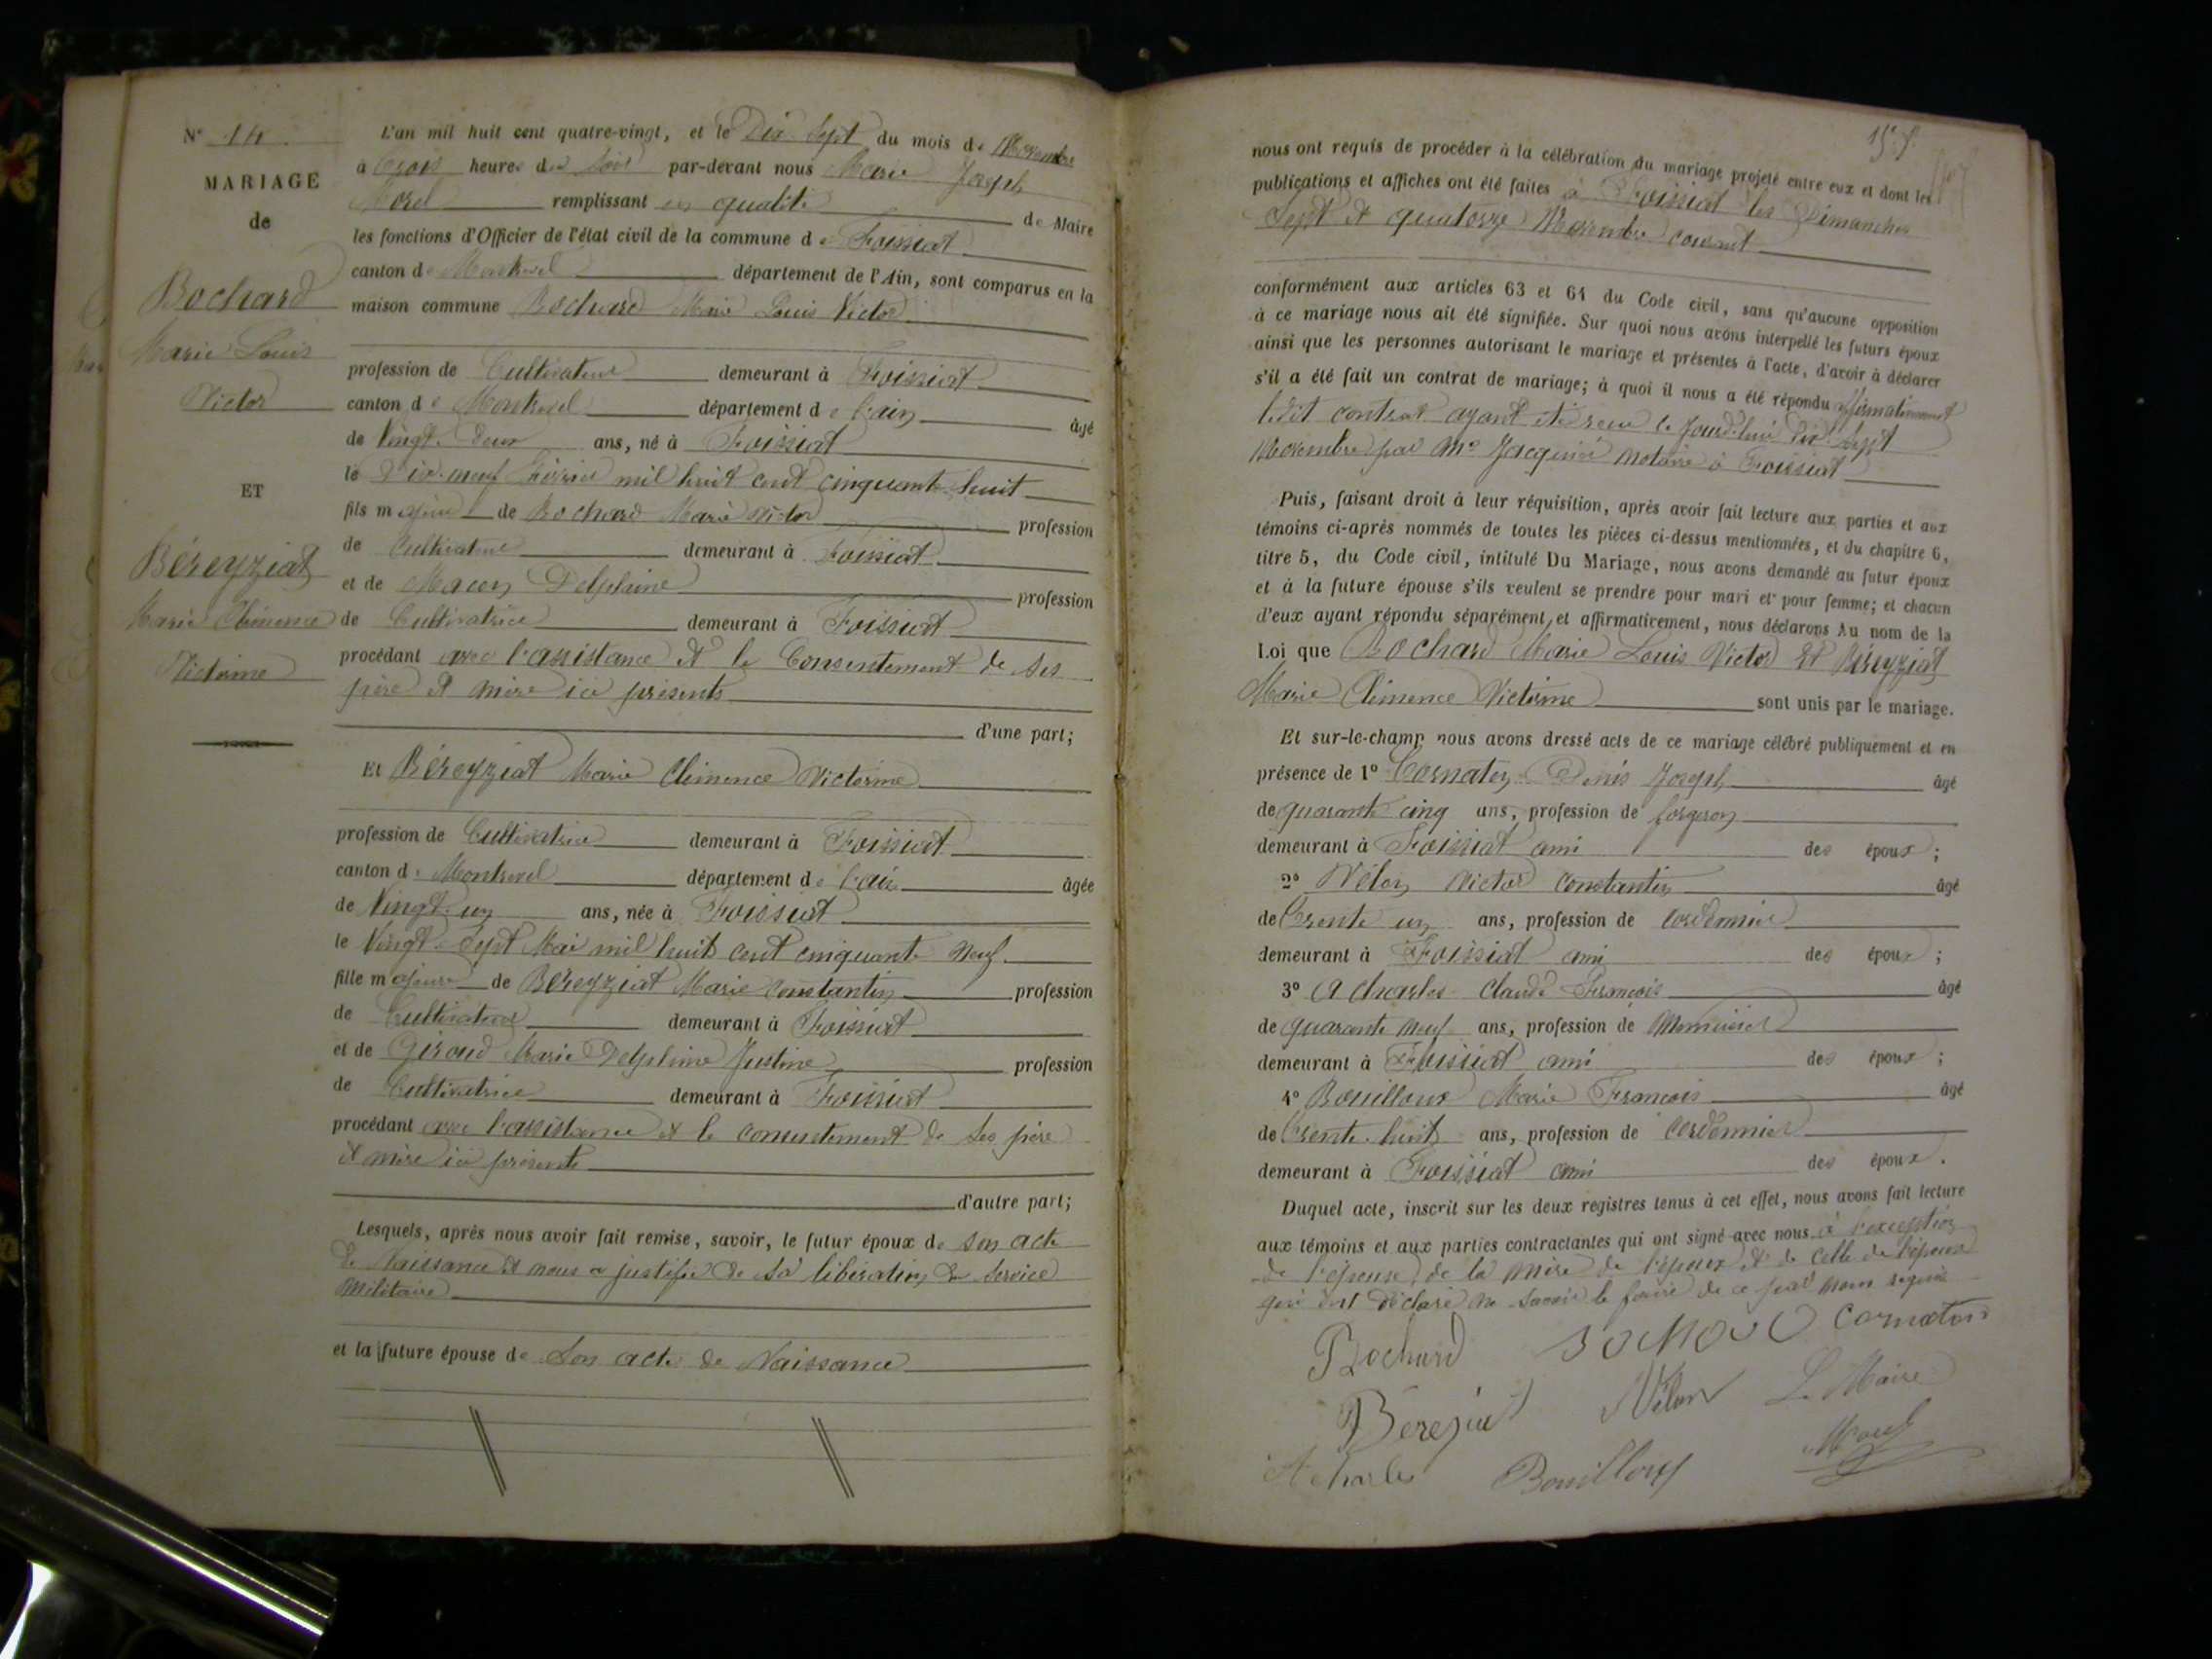 N° 14
MARIAGE
de
Bochard
Marie Louis
Victor
ET
Béreyziat
Marie Clémence
Victorine
L'an mil huit cent quatre-vingt, et le Dix Sept du mois de Novembre
à trois heures du soir par-devant nous Marie Joseph
Morel remplissant en qualité de Maire
les fonctions d'Officier de l'état civil de la commune de Foissiat
canton de Montrevel département de l'Ain, sont comparus en la
maison commune Bochard Marie Louis Victor
profession de Cultivateur demeurant à Foissiat
canton de Montrevel département de l'ain âgé
de Vingt-Deux ans, né à Foissiat
le Dix-neuf février mil huit cent cinquante huit
fils majeur de Bochard Marie Victor profession
de Cultivateur demeurant à Foissiat
et de Macon Delphine profession
de Cultivatrice demeurant à Foissiat
procédant avec l'assistance et le Consentement de ses
père et mère ici présents
d'une part;
Et Béreyziat Marie Clémence Victorine
profession de Cultivatrice demeurant à Foissiat
canton de Montrevel département de l'ain âgée
de Vingt-un ans, née à Foissiat
le Vingt-Sept Mai mil huit cent cinquante Neuf
fille majeure de Béreyziat Marie Constantin profession
de Cultivateur demeurant à Foissiat
et de Giroud Marie Delphine Justine profession
de Cultivatrice demeurant à Foissiat
procédant avec l'assistance et le consentement de ses père
et mère ici présents
d'autre part;
Lesquels, après nous avoir fait remise, savoir, le futur époux de son acte
de Naissance et nous a justifié de sa libération du Service
Militaire
et la future épouse de Son acte de Naissance
15.
nous ont requis de procéder à la célébration du mariage projeté entre eux et dont les
publications et affiches ont été faites à Foissiat les Dimanches
Sept et quatorze Novembre courant
conformément aux articles 63 et 64 du Code civil, sans qu'aucune opposition
à ce mariage nous ait été signifiée. Sur quoi nous avons interpellé les futurs époux
ainsi que les personnes autorisant le mariage et présentes à l'acte, d'avoir à déclarer
s'il a été fait un contrat de mariage; à quoi il nous a été répondu affirmativement
ledit contrat ayant été reçu ce jourd'hui Dix-Sept
Novembre par Me Jacquier notaire à Foissiat
Puis, faisant droit à leur réquisition, après avoir fait lecture aux parties et aux
témoins ci-après nommés de toutes les pièces ci-dessus mentionnées, et du chapitre 6,
titre 5, du Code civil, intitulé Du Mariage, nous avons demandé au futur époux
et à la future épouse s'ils veulent se prendre pour mari et pour femme; et chacun
d'eux ayant répondu séparément, et affirmativement, nous déclarons Au nom de la
Loi que Bochard Marie Louis Victor et Béreyziat
Marie Clémence Victorine sont unis par le mariage.
Et sur-le-champ nous avons dressé acte de ce mariage célébré publiquement et en
présence de 1° Cornaton Denis Joseph âgé
de quarante cinq ans, profession de forgeron
demeurant à Foissiat ami des époux;
2° Vélon Victor Constantin âgé
de trente un ans, profession de cordonnier
demeurant à Foissiat ami des époux;
3° Acharles Claude François âgé
de quarante neuf ans, profession de Menuisier
demeurant à Foissiat ami des époux;
4° Bouilloux Marie François âgé
de trente huit ans, profession de cordonnier
demeurant à Foissiat ami des époux.
Duquel acte, inscrit sur les deux registres tenus à cet effet, nous avons fait lecture
aux témoins et aux parties contractantes qui ont signé avec nous à l'exception
de l'épouse, de la mère de l'époux et de celle de l'épouse
qui ont déclaré ne savoir le faire de ce par nous requis
Bochard Cornaton
Bereziat Vélon Le Maire
Acharles Bouilloux Morel